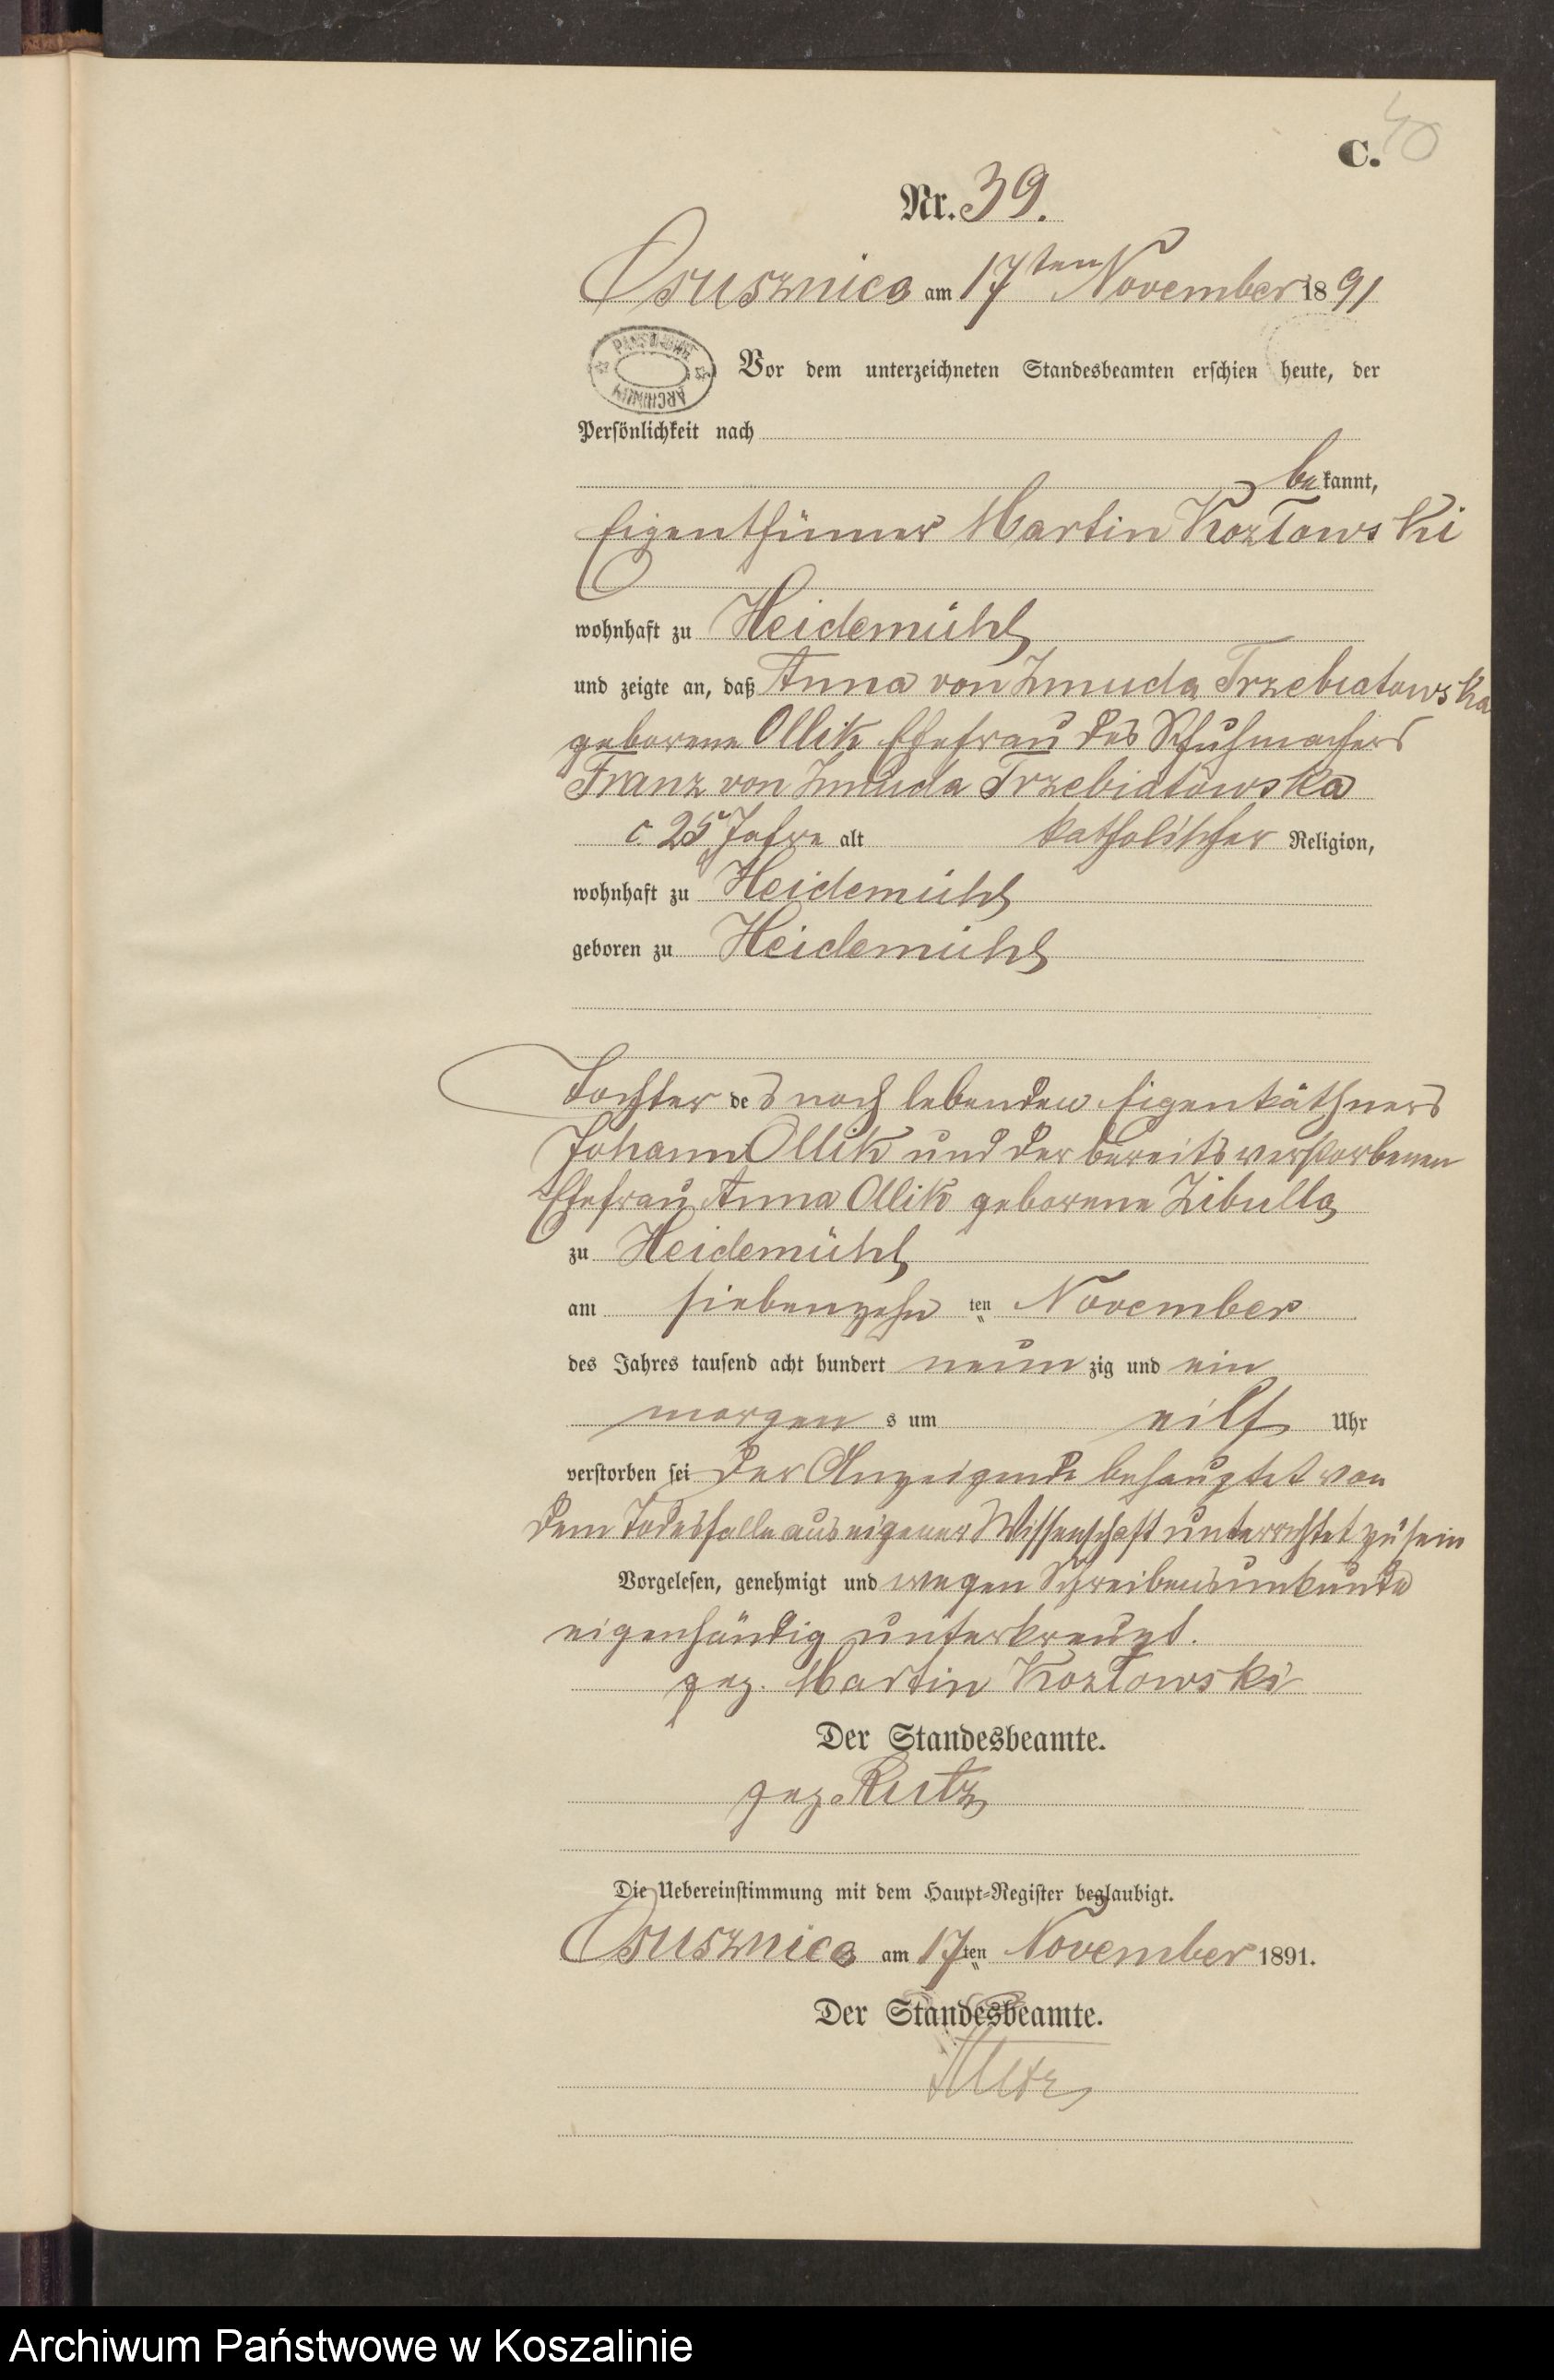 40
C.
Nr. 39.
Osusznica am 17ten November 1891
PAŃSTWOWE ARCHIWUM
Vor dem unterzeichneten Standesbeamten erschien heute, der
Persönlichkeit nach
bekannt,
Eigenthümer Martin Kozlowski
wohnhaft zu Heidemühl
und zeigte an, daß Anna von Zmuda Trzebiatowska
geborene Ollik Ehefrau des Schuhmachers
Franz von Zmuda Trzebiatowska
c. 25 Jahre alt katholischer Religion,
wohnhaft zu Heidemühl
geboren zu Heidemühl
Tochter des noch lebenden Eigenkäthners
Johann Ollik und der bereits verstorbenen
Ehefrau Anna Ollik geborene Zibulla
zu Heidemühl
am siebenzehn ten November
des Jahres tausend acht hundert neun zig und ein
morgen s um eilf Uhr
verstorben sei der Anzeigende behauptet von
dem Todesfalle aus eigener Wissenschaft unterrichtet zu sein
Vorgelesen, genehmigt und wegen Schreibensunkunde
eigenhändig unterkreuzt.
gez. Martin Kozlowski
Der Standesbeamte.
gez. Rutz
Die Uebereinstimmung mit dem Haupt-Register beglaubigt.
Osusznica am 17ten November 1891.
Der Standesbeamte.
Rutz
Archiwum Państwowe w Koszalinie